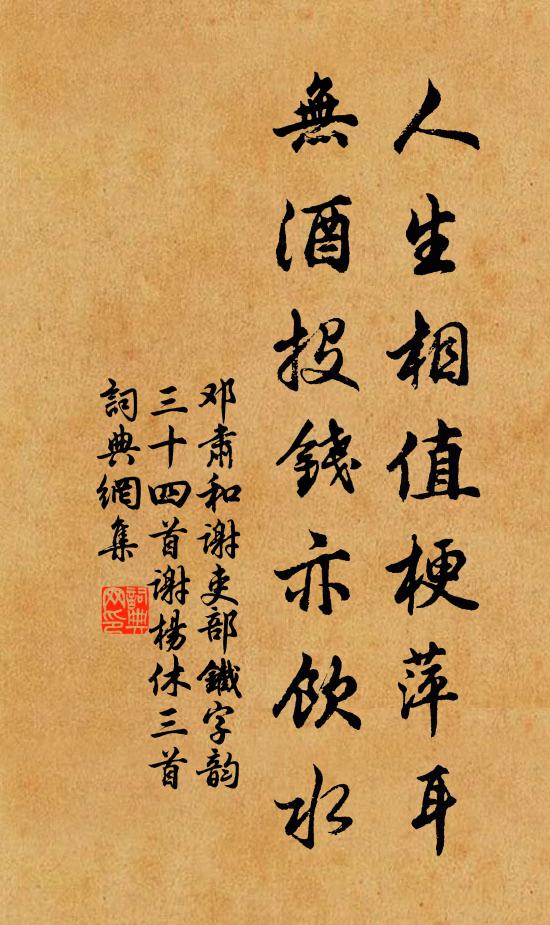 人生相值梗萍耳
無酒投錢亦飲水
邓肅和谢吏部鐵字韵
三十四首谢楊休三首
詞典網集
詞典网印